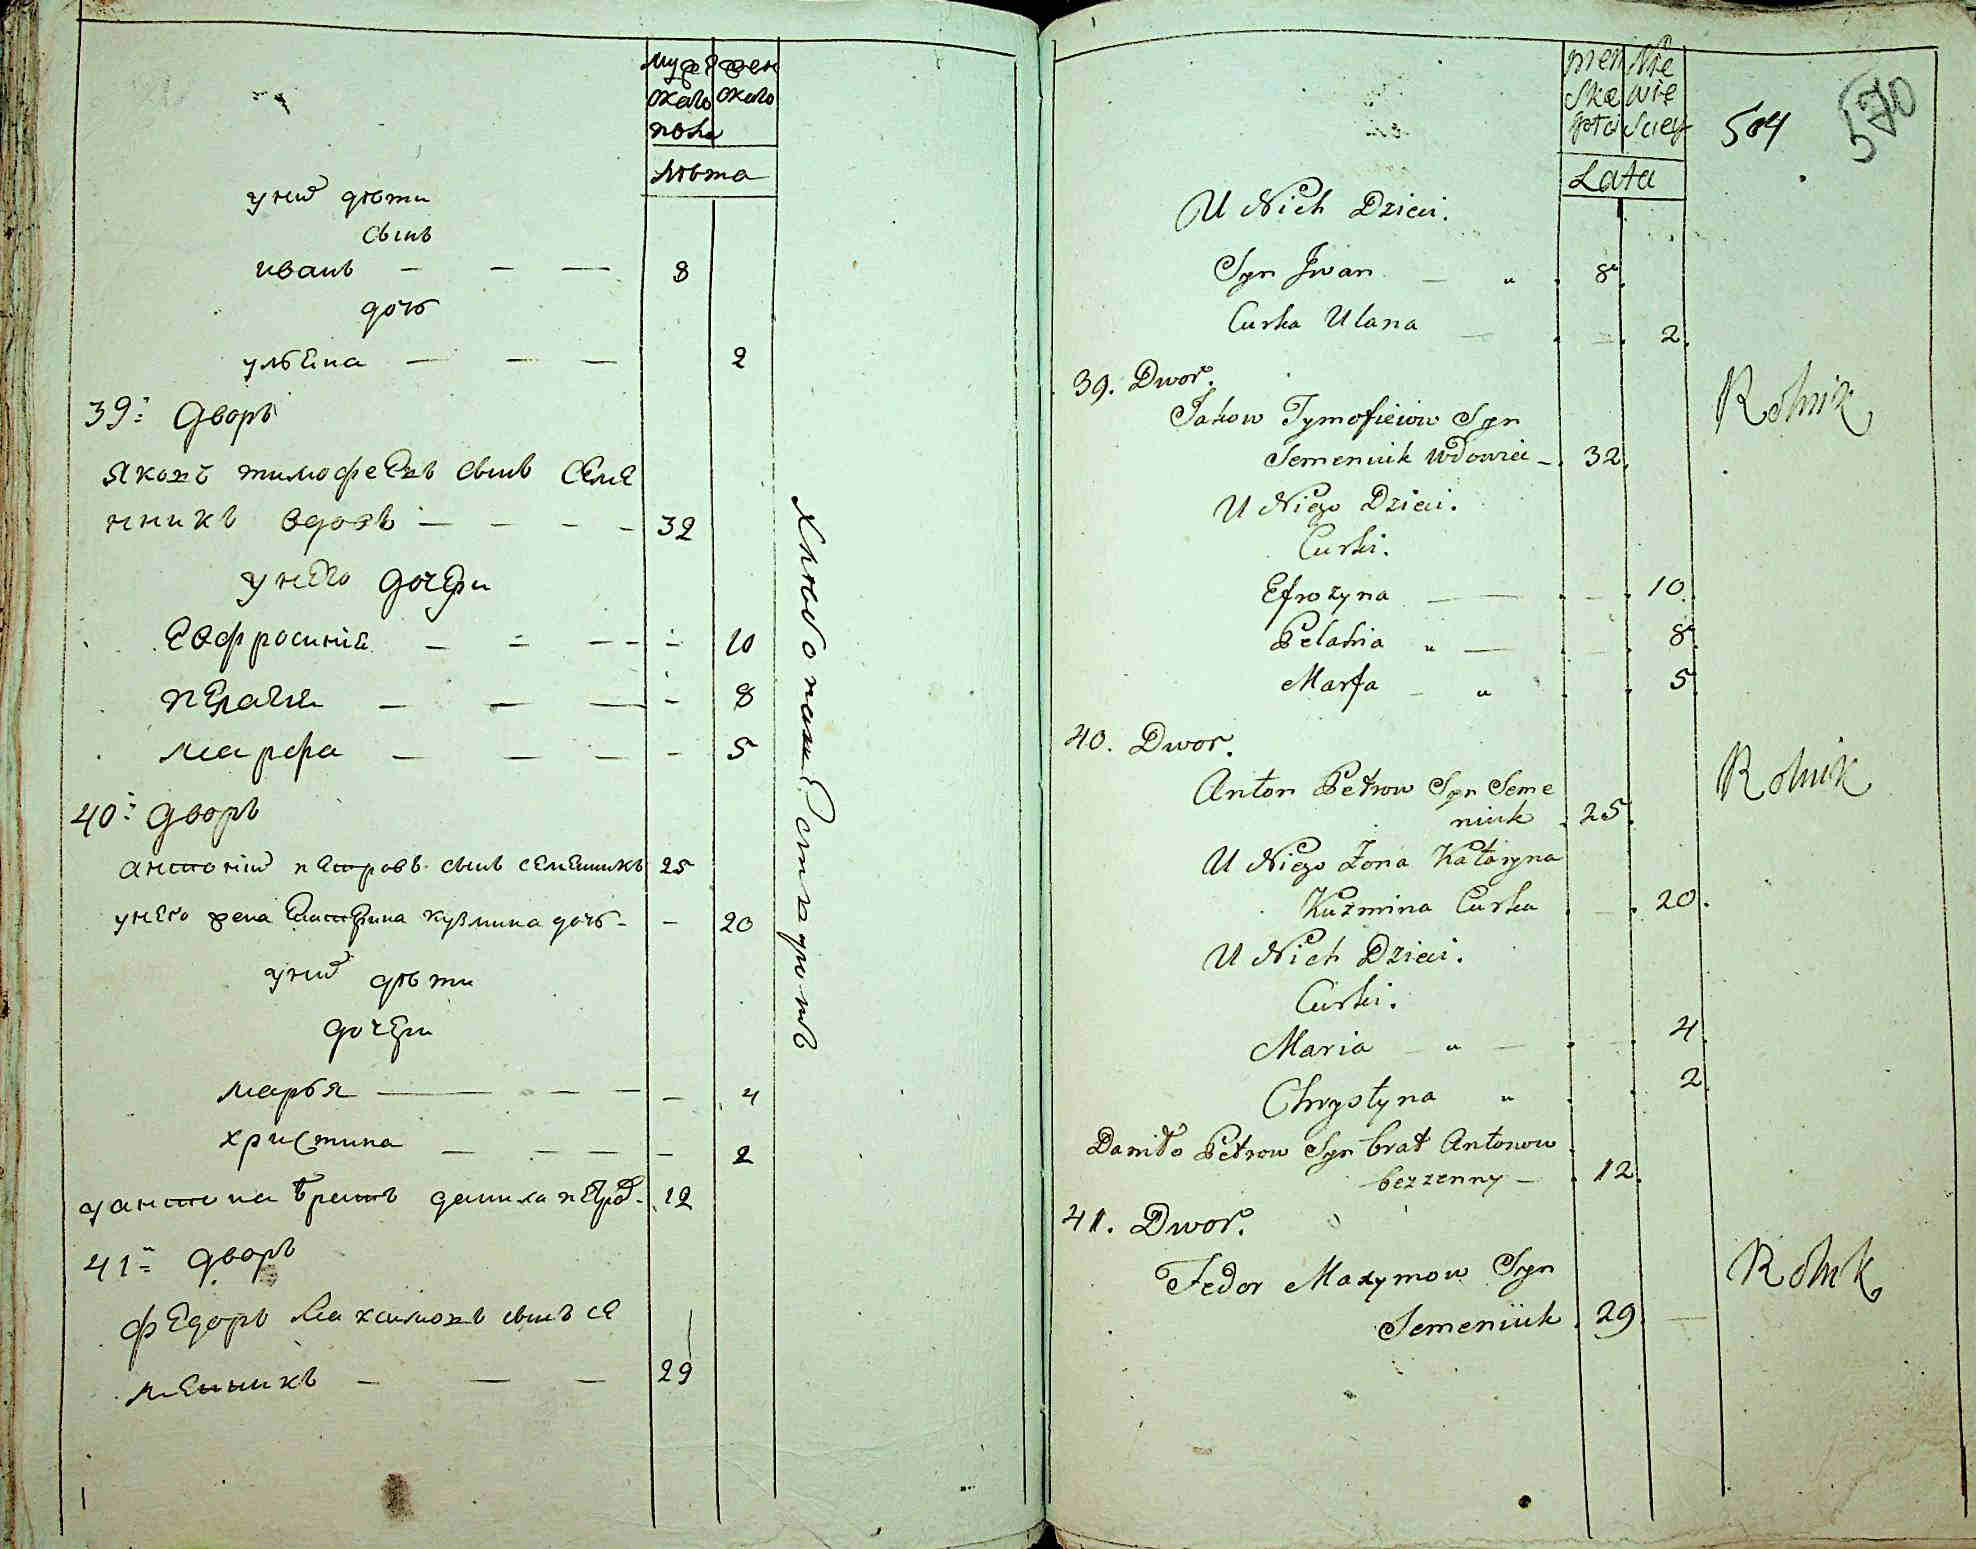 мужеска пола
женскаго
Лѣта
у них дѣти
сынъ
иванъ — — — 8
дочь
ульяна — — — 2
39: дворъ
Яковъ тимофеевъ сынъ Семе
нникъ вдовъ — — — — 32
у него дочери
Евфросинiя — — — — 10
пелагия — — — — 8
марфа — — — — 5
40: дворъ
антонiй петровъ сынъ семенникъ 25
у него жена Екатерина кузмина дочь — — 20
у них дѣти
дочери
марья — — — — 4
христина — — — — 2
у антона братъ данила петров. 12
41: дворъ
федоръ Максимовъ сынъ се
менникъ — — — 29
хлебопашествуютъ
Męskiej płci
Niewieściej
Lata
504
570
U Nich Dzieci.
Syn Jwan — „ 8
Curka Ulana — 2.
39. Dwor.
Rolnik
Jakow Tymofieiow Syn
Semeniuk Wdowiec — 32
U Niego Dzieci.
Curki.
Efrozyna — — 10.
Pelahia „ — 8
Marfa — „ 5
40. Dwor.
Rolnik
Anton Petrow Syn Seme
niuk 25
U Niego Żona Kataryna
Kuzmina Curka — 20.
U Nich Dzieci.
Curki.
Maria — „ — 4
Chrystyna „ 2
Daniło Petrow Syn brat Antonow
bezzenny — 12.
41. Dwor.
Fedor Maxymow Syn
Rolnik
Semeniuk 29. —